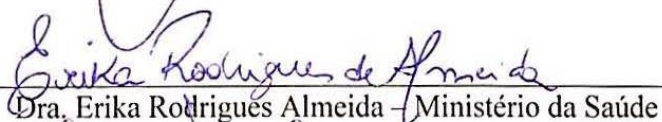 Erika Rodrigues de Almeida
Dra. Erika Rodrigues Almeida – Ministério da Saúde